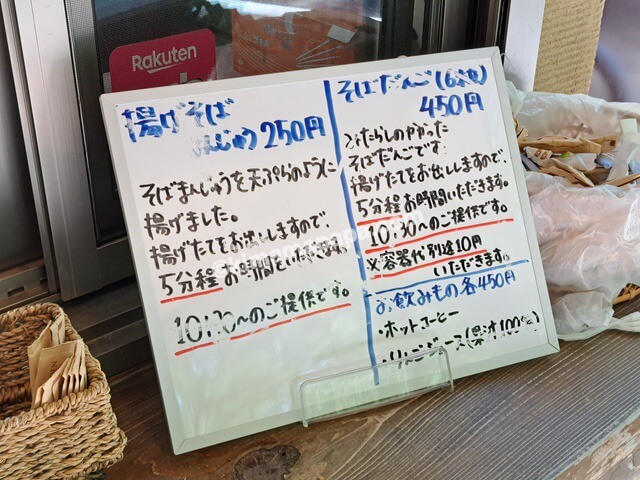 Rakuten
揚げそば
まんじゅう 250円
そばまんじゅうを天ぷらのように
揚げました。
揚げたてをお出ししますので、
5分程お時間いただきます。
10:30〜のご提供です。
そばだんご(6コ)
450円
みたらしのかかった
そばだんごです。
揚げたてをお出ししますので、
5分程お時間いただきます。
10:30〜のご提供です。
※容器代別途10円
いただきます。
お飲みもの各450円
・ホットコーヒー
・りんごジュース(果汁100%)